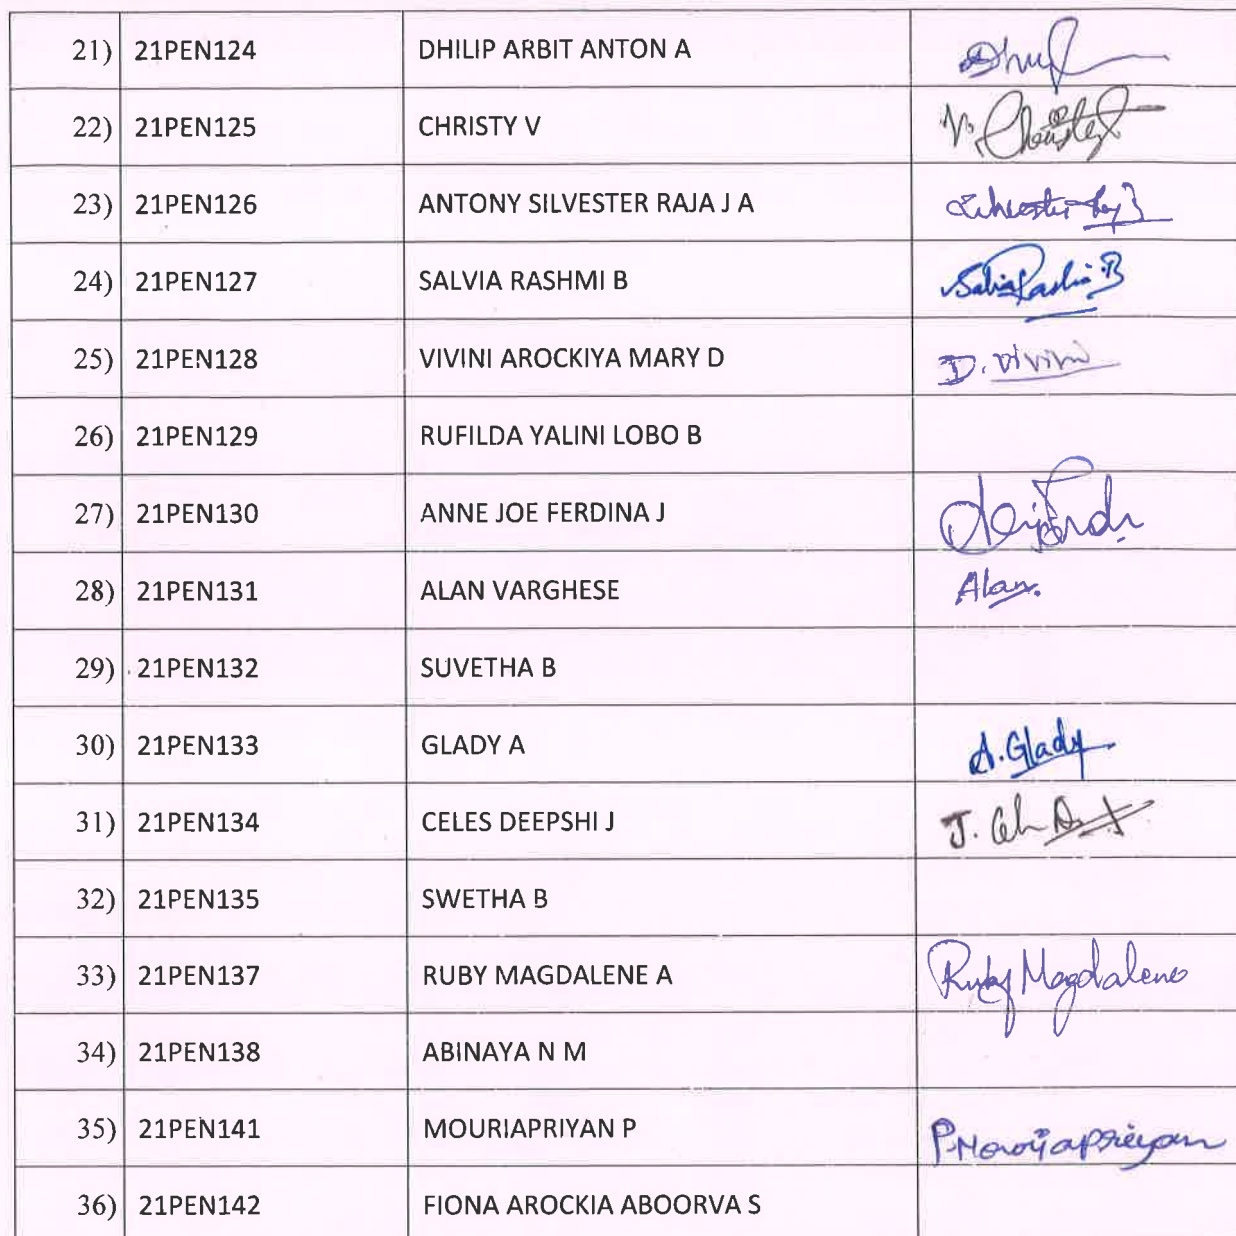 21) 21PEN124 DHILIP ARBIT ANTON A
22) 21PEN125 CHRISTY V V. Christy
23) 21PEN126 ANTONY SILVESTER RAJA J A
24) 21PEN127 SALVIA RASHMI B Salvia Rashmi B
25) 21PEN128 VIVINI AROCKIYA MARY D D. Vivini
26) 21PEN129 RUFILDA YALINI LOBO B
27) 21PEN130 ANNE JOE FERDINA J
28) 21PEN131 ALAN VARGHESE Alan.
29) 21PEN132 SUVETHA B
30) 21PEN133 GLADY A A. Glady
31) 21PEN134 CELES DEEPSHI J J.
32) 21PEN135 SWETHA B
33) 21PEN137 RUBY MAGDALENE A Ruby Magdalene
34) 21PEN138 ABINAYA N M
35) 21PEN141 MOURIAPRIYAN P P. Mouriapriyan
36) 21PEN142 FIONA AROCKIA ABOORVA S